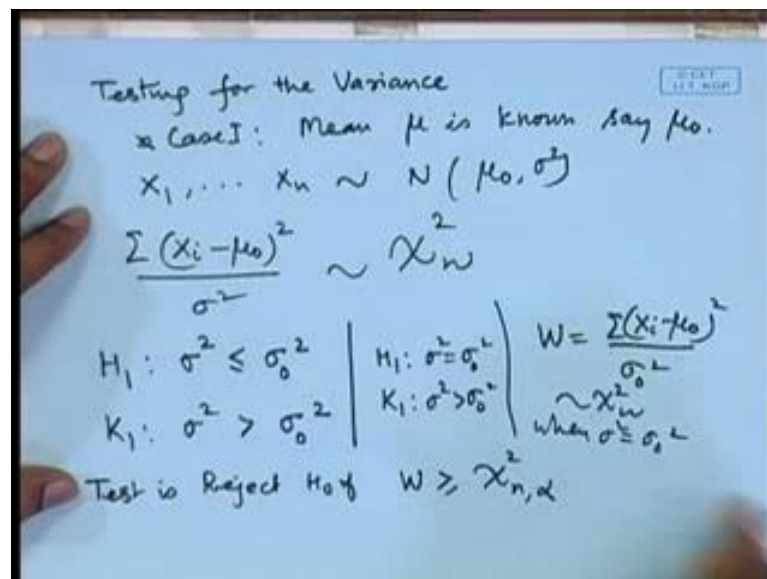 Testing for the Variance
Case I: Mean μ is known say μ₀.
X₁, ... Xₙ ~ N(μ₀, σ²)
Σ(Xᵢ-μ₀)² / σ² ~ χ²ₙ
H₁: σ² ≤ σ₀² | H₁: σ² = σ₀² | W = Σ(Xᵢ-μ₀)² / σ₀²
K₁: σ² > σ₀² | K₁: σ² > σ₀² | ~ χ²ₙ
when σ² = σ₀²
Test is Reject H₀ if W ≥ χ²ₙ,α